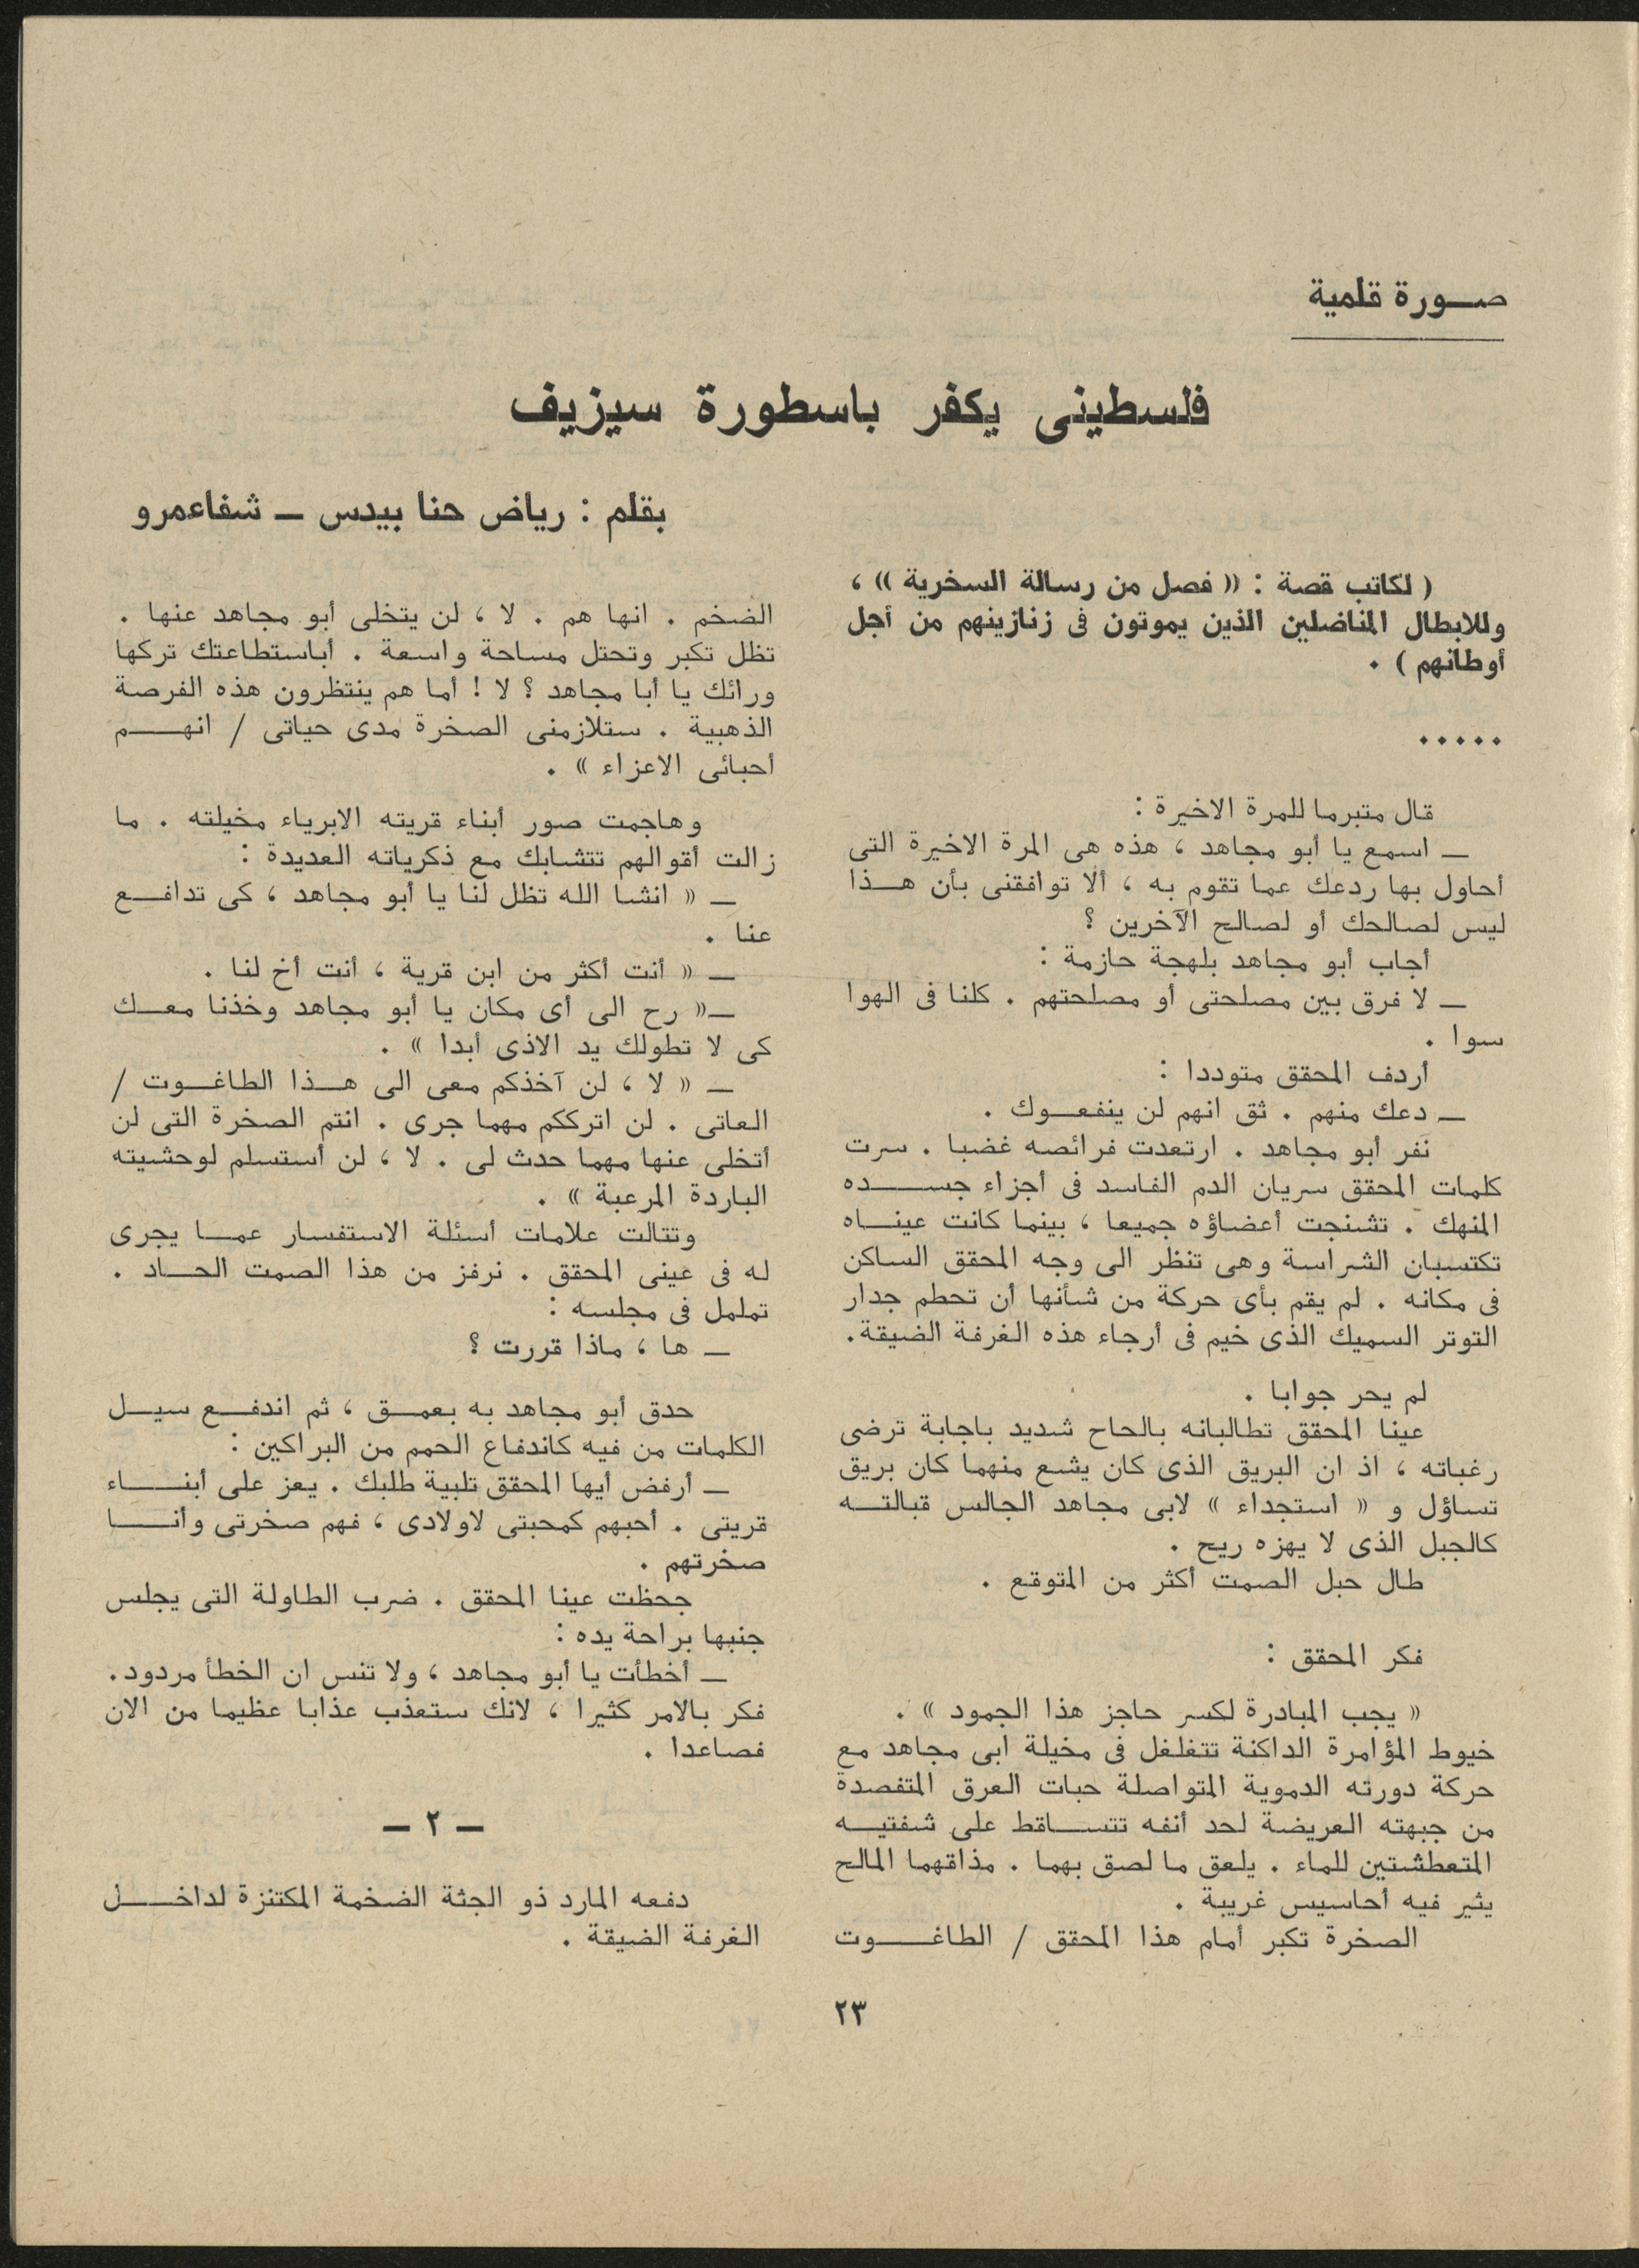 صورة قلمية
فلسطينى يكفر باسطورة سيزيف
بقلم : رياض حنا بيدس ــ شفاعمرو
( لكاتب قصة : « فصل من رسالة السخرية » ،
وللابطال المناضلين الذين يموتون فى زنازينهم من أجل
أوطانهم ) .
.....
قال متبرما للمرة الاخيرة :
ــ اسمع يا أبو مجاهد ، هذه هى المرة الاخيرة التى
أحاول بها ردعك عما تقوم به ، ألا توافقنى بأن هذا
ليس لصالحك أو لصالح الآخرين ؟
أجاب أبو مجاهد بلهجة حازمة :
ــ لا فرق بين مصلحتى أو مصلحتهم . كلنا فى الهوا
سوا .
أردف المحقق متوددا :
ــ دعك منهم . ثق انهم لن ينفعوك .
نفر أبو مجاهد . ارتعدت فرائصه غضبا . سرت
كلمات المحقق سريان الدم الفاسد فى أجزاء جسده
المنهك . تشنجت أعضاؤه جميعا ، بينما كانت عيناه
تكتسبان الشراسة وهى تنظر الى وجه المحقق الساكن
فى مكانه . لم يقم بأى حركة من شأنها أن تحطم جدار
التوتر السميك الذى خيم فى أرجاء هذه الغرفة الضيقة.
لم يحر جوابا .
عينا المحقق تطالبانه بالحاح شديد باجابة ترضى
رغباته ، اذ ان البريق الذى كان يشع منهما كان بريق
تساؤل و « استجداء » لابى مجاهد الجالس قبالته
كالجبل الذى لا يهزه ريح .
طال حبل الصمت أكثر من المتوقع .
فكر المحقق :
« يجب المبادرة لكسر حاجز هذا الجمود » .
خيوط المؤامرة الداكنة تتغلغل فى مخيلة ابى مجاهد مع
حركة دورته الدموية المتواصلة حبات العرق المتفصدة
من جبهته العريضة لحد أنفه تتساقط على شفتيه
المتعطشتين للماء . يلعق ما لصق بهما . مذاقهما المالح
يثير فيه أحاسيس غريبة .
الصخرة تكبر أمام هذا المحقق / الطاغوت
الضخم . انها هم . لا ، لن يتخلى أبو مجاهد عنها .
تظل تكبر وتحتل مساحة واسعة . أباستطاعتك تركها
ورائك يا أبا مجاهد ؟ لا ! أما هم ينتظرون هذه الفرصة
الذهبية . ستلازمنى الصخرة مدى حياتى / انهم
أحبائى الاعزاء » .
وهاجمت صور أبناء قريته الابرياء مخيلته . ما
زالت أقوالهم تتشابك مع ذكرياته العديدة :
ــ « انشا الله تظل لنا يا أبو مجاهد ، كى تدافع
عنا .
ــ « أنت أكثر من ابن قرية ، أنت أخ لنا .
ــ« رح الى أى مكان يا أبو مجاهد وخذنا معك
كى لا تطولك يد الاذى أبدا » .
ــ « لا ، لن آخذكم معى الى هذا الطاغوت /
العاتى . لن اترككم مهما جرى . انتم الصخرة التى لن
أتخلى عنها مهما حدث لى . لا ، لن أستسلم لوحشيته
الباردة المرعبة » .
وتتالت علامات أسئلة الاستفسار عما يجرى
له فى عينى المحقق . نرفز من هذا الصمت الحاد .
تململ فى مجلسه :
ــ ها ، ماذا قررت ؟
حدق أبو مجاهد به بعمق ، ثم اندفع سيل
الكلمات من فيه كاندفاع الحمم من البراكين :
ــ أرفض أيها المحقق تلبية طلبك . يعز على أبناء
قريتى . أحبهم كمحبتى لاولادى ، فهم صخرتى وأنا
صخرتهم .
جحظت عينا المحقق . ضرب الطاولة التى يجلس
جنبها براحة يده :
ــ أخطأت يا أبو مجاهد ، ولا تنس ان الخطأ مردود.
فكر بالامر كثيرا ، لانك ستعذب عذابا عظيما من الان
فصاعدا .
ــ ٢ ــ
دفعه المارد ذو الجثة الضخمة المكتنزة لداخل
الغرفة الضيقة .
٢٣